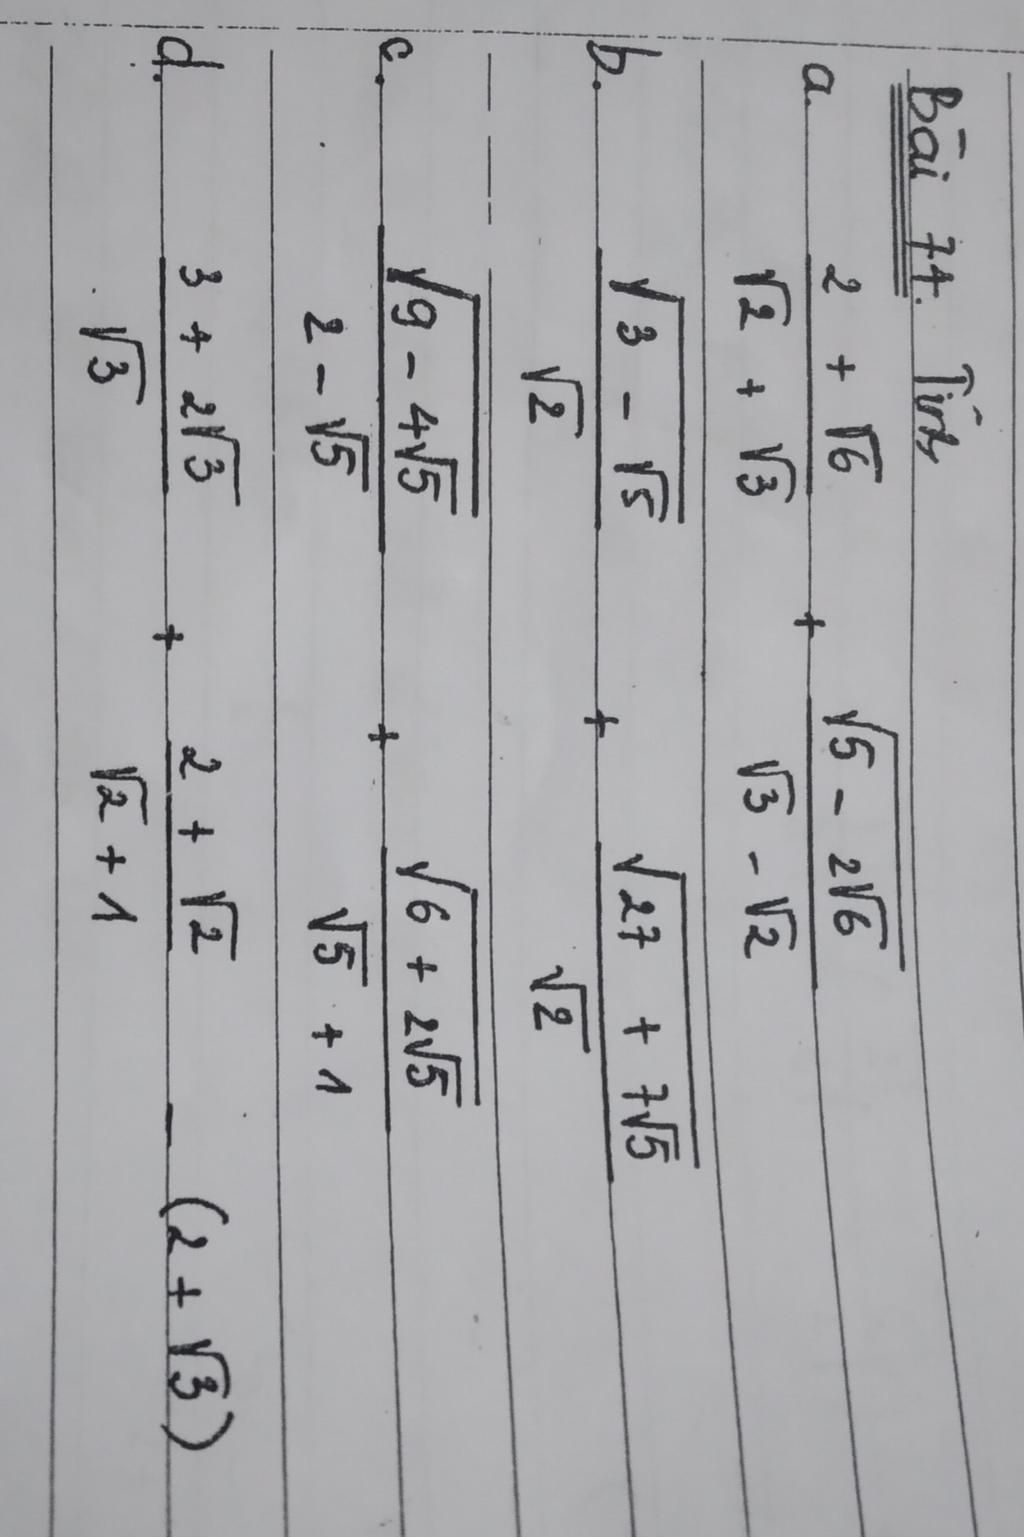 Bài 74. Tính
a. \frac{2 + \sqrt{6}}{\sqrt{2} + \sqrt{3}} + \frac{\sqrt{5 - 2\sqrt{6}}}{\sqrt{3} - \sqrt{2}}
b. \frac{\sqrt{3 - \sqrt{5}}}{\sqrt{2}} + \frac{\sqrt{27 + 7\sqrt{5}}}{\sqrt{2}}
c. \frac{\sqrt{9 - 4\sqrt{5}}}{2 - \sqrt{5}} + \frac{\sqrt{6 + 2\sqrt{5}}}{\sqrt{5} + 1}
d. \frac{3 + 2\sqrt{3}}{\sqrt{3}} + \frac{2 + \sqrt{2}}{\sqrt{2} + 1} - (2 + \sqrt{3})